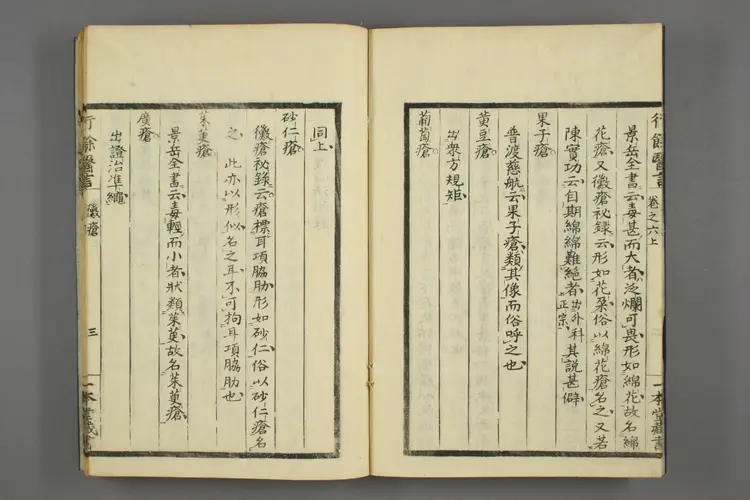 行餘醫言
卷之六上
一本堂藏書
景岳全書云毒甚而大者泛爛可畏形如綿花故名綿
花瘡又黴瘡祕錄云形如花朶俗以綿花瘡名之又若
陳實功云自期綿綿難絕者出外科正宗其說甚僻
果子瘡
普渡慈航云果子瘡類其像而俗呼之也
黃豆瘡
出衆方規矩
葡萄瘡
同上
砂仁瘡
黴瘡祕錄云瘡標耳項脇肋形如砂仁俗以砂仁瘡名
之此亦以形似名之耳不可拘耳項脇肋也
茱萸瘡
景岳全書云毒輕而小者狀類茱萸故名茱萸瘡
廣瘡
出證治準繩
行餘醫言
黴瘡
三
一本堂藏書